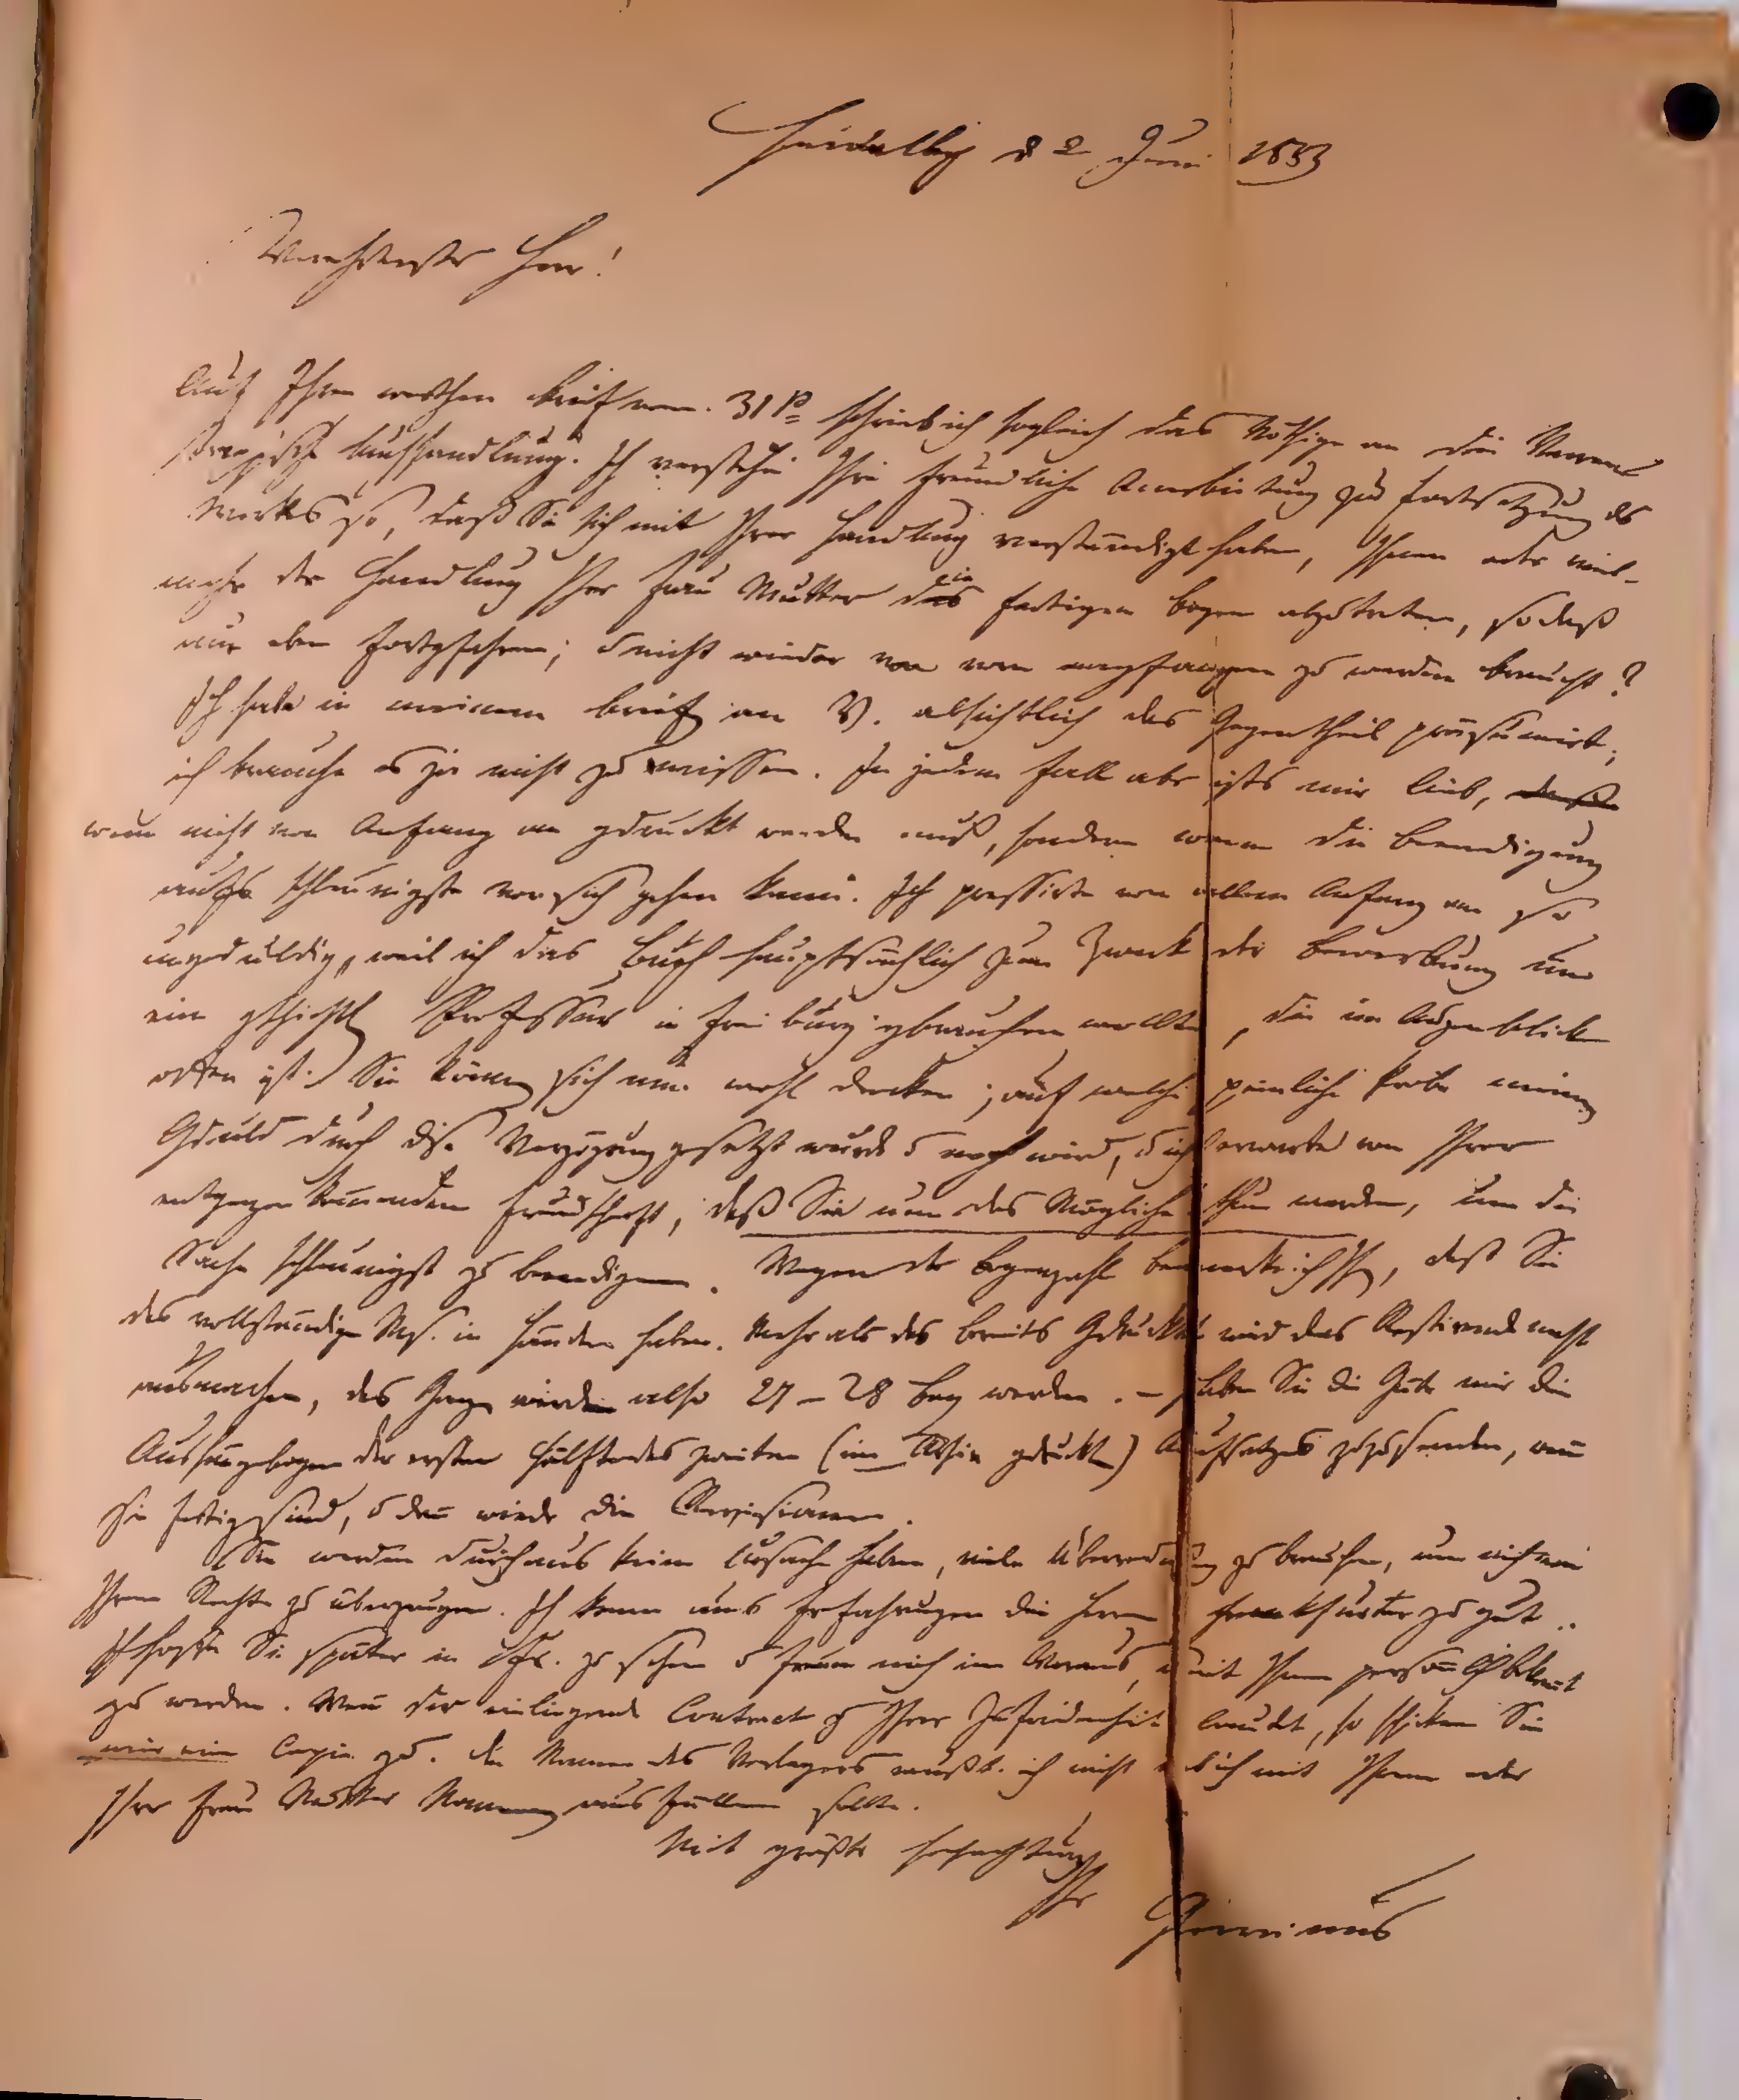 Heidelbg d 2 Juni 1833
Verehrtester Herr!
Auf Ihren werthen Brief vom 31 p. schrieb ich sogleich das Nöthige an die Varren
trappsche Buchhandlung. Ich verstehe Ihre freundliche Anerbietung zur Fortsetzung des
Werks so, daß Sie sich mit Ihrer Handlung verständigt haben, Ihnen oder viel-
mehr der Handlung Ihrer Frau Mutter die fertigen Bogen abzutreten, so daß
nur eben fortgefahren; u nicht wieder von vorn angefangen zu werden braucht?
Ich habe in meinem Brief an V. absichtlich das Gegentheil präsumirt;
ich brauche es ja nicht zu wissen. In jedem Fall aber ists mir lieb,
wenn nicht von Anfang an gedruckt werden muß, sondern wenn die Beendigung
aufs schleunigste vor sich gehen kann. Ich pressirte von allem Anfang an so
ungeduldig, weil ich das Buch hauptsächlich zum Zweck der Bewerbung um
eine geschichtl Professur in Freiburg gebrauchen wollte, die im Augenblick
offen ist. Sie können sich nun wohl denken, auf welche peinliche Probe meine
Geduld durch diese Verzögerung gesetzt wurde u noch wird, u ich erwarte von Ihrer
entgegen kommenden Freundschaft, daß Sie nun das Mögliche thun werden, um die
Sache schleunigst zu beendigen. Wegen der Bogenzahl bemerke ich Ihn, daß Sie
das vollständige Ms. in Händen haben. Mehr als das bereits Gedruckte wird das Restirende nicht
ausmachen, das Ganze wird also 27 – 28 Bog werden. – Haben Sie die Güte mir die
Aushängebogen der ersten Hälfte des zweiten (im Archiv gedruckten) Aufsatzes zuzusenden, wenn
sie fertig sind, u dann wieder die Revisionen.
Sie werden durchaus keine Ursache haben, viele Überredung zu brauchen, um mich von
Ihrem Rechte zu überzeugen. Ich kenne aus Erfahrungen die Herrn Frankfurter zu gut.
Ich hoffe Sie später in Ffr. zu sehen u freue mich im Voraus, mit Ihnen persönlich bekannt
zu werden. Wenn der einliegende Contract zu Ihrer Zufriedenheit lautet, so schicken Sie
mir eine Copie zu. Den Namen des Verlegers wußte ich nicht ob ich mit Ihrem oder
Ihrer Frau Mutter Namen ausfüllen sollte.
Mit größter Hochachtung
Ihr
Gervinus